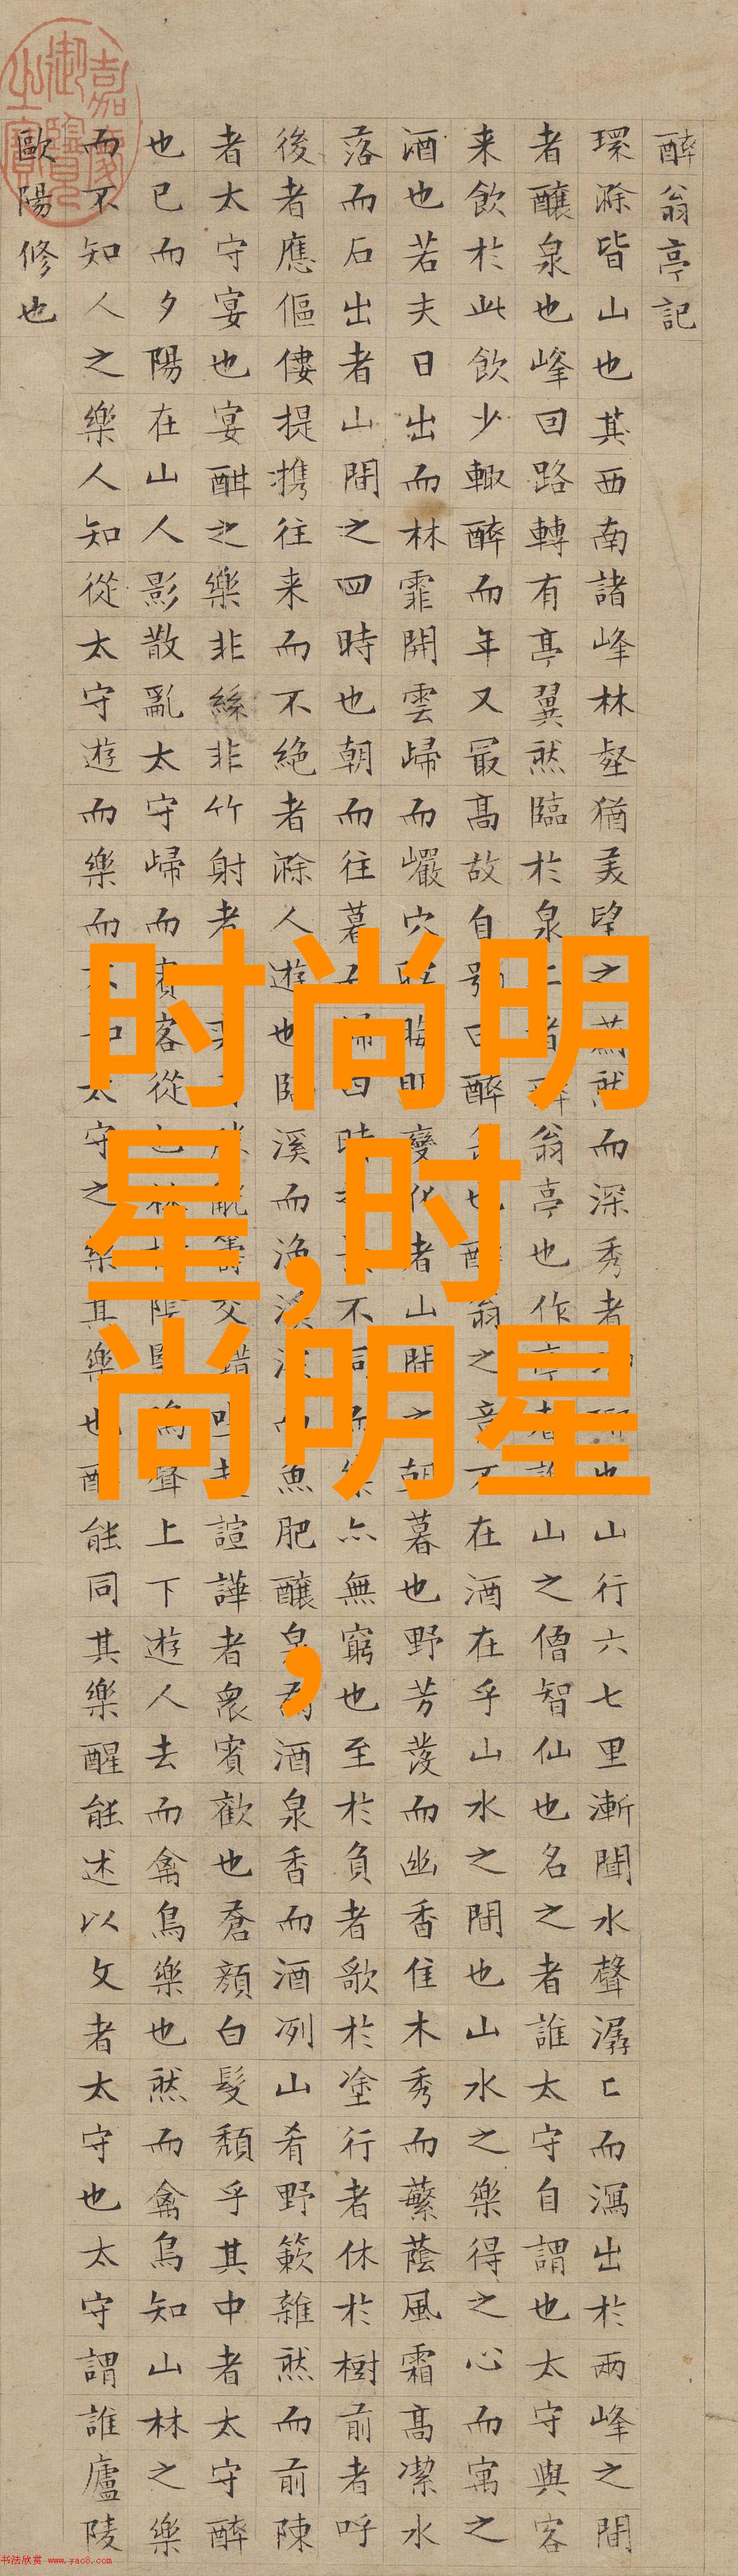 醉翁亭記
環滁皆山也其西南諸峰林壑猶美望之蔚然而深秀者也山行六七里漸聞水聲潺〻而瀉出於兩峰之間
者釀泉也峰回路轉有亭翼然臨於泉上者醉翁亭也作亭者誰山之僧智仙也名之者誰太守自謂也太守與客
来飲於此飲少輙醉而年又最高故自号曰醉翁也醉翁之意不在酒在乎山水之間也山水之樂得之心而寓之
酒也若夫日出而林霏開雲歸而巖穴暝晦明變化者山間之朝暮也野芳發而幽香佳木秀而蘩蔭風霜高潔水
落而石出者山間之四時也朝而往暮而歸四時之景不同而樂亦無窮也至於負者歌於塗行者休於樹前者呼
後者應傴僂提携往来而不絶者滁人遊也臨溪而漁溪深而魚肥釀泉為酒泉香而酒冽山肴野簌雜然而前陳
者太守宴也宴酣之樂非絲非竹射者弈者勝觥籌交錯坐起諠譁者衆賓歡也蒼顏白髮頹乎其中者太守醉
也已而夕陽在山人影散亂太守歸而賓客從也林木陰翳鳴聲上下遊人去而禽鳥樂也然而禽鳥知山林之樂
而不知人之樂人知從太守遊而樂而不知太守之樂其樂也醉能同其樂醒能述以文者太守也太守謂誰廬陵
歐陽修也
嘉慶御覽之寶
时尚明
星,时
尚明星
,
书法欣赏 www.yac8.com